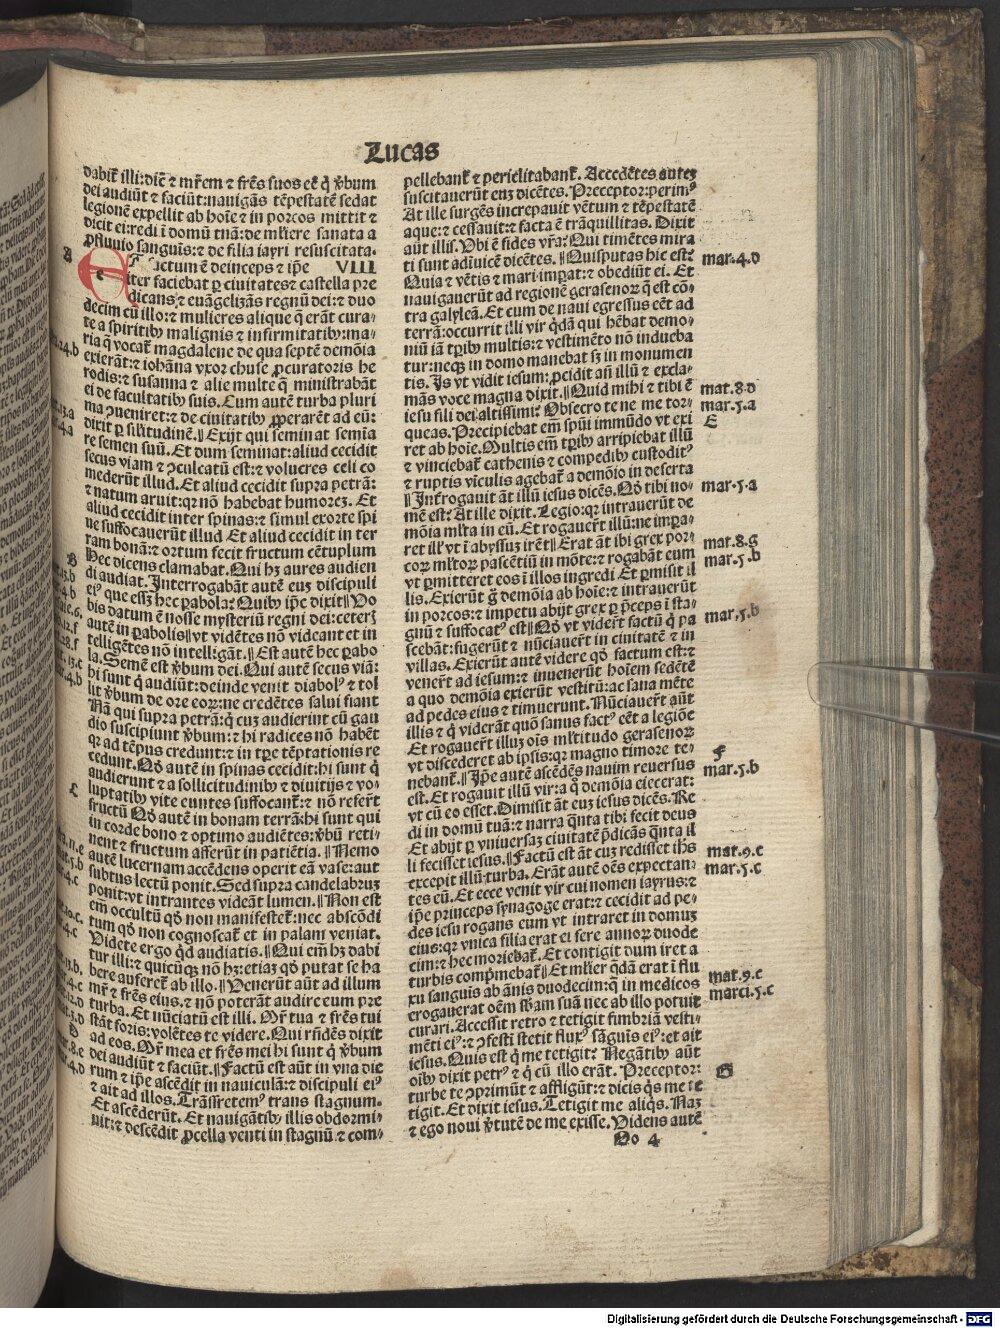 Lucas
dabit᷑ illi: diē ⁊ mr̄em ⁊ fr̄es suos eē q̇ v̄bum
dei audiūt ⁊ faciūt: nauigās tēpestatē sedat
legionē expellit ab hoīe ⁊ in porcos mittit ⁊
dicit ei: redi ī domū tuā: de ml̄iere sanata a
ꝓfluuio sanguīs: ⁊ de filia iayri resuscitata.
A
Et factum ē deinceps ⁊ ip̄e VIII
iter faciebat ꝑ ciuitates ⁊ castella pre
dicans ⁊ euāgelizās regnū dei: ⁊ duo
decim cū illo: ⁊ mulieres alique q̄ erāt cura-
te a spiritibꝰ malignis ⁊ infirmitatibꝰ: ma-
ria q̄ vocat᷑ magdalene de qua septē demōia
exierāt: ⁊ iohāna vxor chuse ꝓcuratoris he
rodis: ⁊ susanna ⁊ alie multe q̄ ministrabāt
ei de facultatibꝰ suis. Cum autē turba pluri
ma ꝯueniret: ⁊ de ciuitatibꝰ ꝓperarēt ad eū:
dixit ꝑ sil̄itudinē. ¶ Exijt qui seminat semīa
re semen suū. Et dum seminat: aliud cecidit
secus viam ⁊ ꝯculcatū est: ⁊ volucres celi co
mederūt illud. Et aliud cecidit supra petrā:
⁊ natum aruit: qꝛ nō habebat humorez. Et
aliud cecidit inter spinas: ⁊ simul exorte spi
ne suffocauerūt illud Et aliud cecidit in ter
ram bonā: ⁊ ortum fecit fructum cētuplum
Hec dicens clamabat. Qui hꝫ aures audien
di audiat. Interrogabāt autē euꝫ discipuli
eiꝰ que essꝫ hec ꝑabola: Quibꝰ ip̄e dixit ¶ Vo
bis datum ē nosse mysteriū regni dei: ceterꝫ
autē in ꝑabolis ¶ vt vidētes nō videant et in
telligētes nō intelligāt. ¶ Est autē hec ꝑabo
la. Semē est v̄bum dei. Qui autē secus viā:
hi sunt q̇ audiūt: deinde venit diabolꝰ ⁊ tol
lit v̄bum de ore eoꝝ: ne credētes salui fiant
Nā qui supra petrā: q̇ cuꝫ audierint cū gau
dio suscipiunt v̄bum: ⁊ hi radices nō habēt
qꝛ ad tēpus credunt: ⁊ in tꝑe tēptationis re
cedunt. Qđ autē in spinas cecidit: hi sunt q̇
audierunt ⁊ a sollicitudinibꝰ ⁊ diuitijs ⁊ vo-
luptatibꝰ vite euntes suffocant᷑: ⁊ nō refert᷑
fructū Qđ autē in bonam terrā: hi sunt qui
in corde bono ⁊ optimo audiētes: v̄bū reti-
nent ⁊ fructum afferūt in patiētia. ¶ Nemo
autē lucernam accēdens operit eā vase: aut
subtus lectū ponit. Sed supra candelabruꝫ
ponit: vt intrantes videāt lumen. ¶ Non est
em̄ occultū qđ non manifestet᷑: nec abscōdi
tum qđ non cognoscat᷑ et in palam veniat.
Videte ergo q̇d audiatis. ¶ Qui em̄ hꝫ dabi
tur illi: ⁊ quicūqꝫ nō hꝫ: etiaꝫ qđ putat se ha
bere auferet᷑ ab illo. ¶ Venerūt aūt ad illum
mr̄ ⁊ fr̄es eius. ⁊ nō poterāt audire eum pre
turba. Et nūciatū est illi. Mr̄ tua ⁊ fr̄es tui
stāt foris: volētes te videre. Qui rn̄dēs dixit
ad eos. Mr̄ mea et fr̄es mei hi sunt q̇ v̄bum
dei audiūt ⁊ faciūt. ¶ Factū est aūt in vna die
rum ⁊ ip̄e ascēdit in nauiculā: ⁊ discipuli eiꝰ
⁊ ait ad illos. Trāsfretemꝰ trans stagnum.
Et ascēderūt. Et nauigātibꝰ illis obdormi-
uit: ⁊ descēdit ꝓcella venti in stagnū ⁊ com-
pellebant᷑ ⁊ periclitabant᷑. Accedētes autez
suscitauerūt euꝫ dicētes. Preceptor: perimꝰ
At ille surgēs increpauit vētum ⁊ tēpestatē
aque: ⁊ cessauit: ⁊ facta ē trāquillitas. Dixit
aūt illis. Vbi ē fides vr̄a: Qui timētes mira
ti sunt adīuicē dicētes. ¶ Quisputas hic est:
Quia ⁊ vētis ⁊ mari impat: ⁊ obediūt ei. Et
nauigauerūt ad regionē gerasenoꝝ q̄ est cō-
tra galyleā. Et cum de naui egressus eēt ad
terrā: occurrit illi vir q̇dā qui hēbat demo-
niū iā tꝑibꝰ multis: ⁊ vestimēto nō indueba
tur: neqꝫ in domo manebat sꝫ in monumen
tis. Is vt vidit iesum: ꝓcidit añ illū ⁊ excla-
māś voce magna dixit. ¶ Quid mihi ⁊ tibi ē
iesu fili dei altissimi: Obsecro te ne me tor-
queas. Precipiebat em̄ spūi immūdo vt exi
ret ab hoīe. Multis em̄ tꝑibꝰ arripiebat illū
⁊ vinciebat᷑ cathenis ⁊ compedibꝰ custoditꝰ
⁊ ruptis vīculis agebat᷑ a demōio in deserta
¶ Interrogauit āt illū iesus dicēs. Qđ tibi no-
mē est: At ille dixit. Legio: qꝛ intrauerūt de
mōia ml̄ta in eū. Et rogauer̄t illū: ne impa-
ret ill᷑ vt ī abyssuꝫ irēt ¶ Erat āt ibi grex por-
coꝝ ml̄toꝝ pascētiū in mōte: ⁊ rogabāt eum
vt ꝑmitteret eos ī illos ingredi Et ꝑmisit il
lis. Exierūt g̊ demōia ab hoīe: ⁊ intrauerūt
in porcos: ⁊ impetu abijt grex ꝑ p̄ceps ī sta-
gnū ⁊ suffocatꝰ est ¶ Qđ vt vider̄t factū q̇ pa
scebāt: fugerūt ⁊ nūciauer̄t in ciuitatē ⁊ in
villas. Exierūt autē videre qđ factum est: ⁊
vener̄t ad iesum: ⁊ inuenerūt hoīem sedētē
a quo demōia exierūt vestitū: ac sana mēte
ad pedes eius ⁊ timuerunt. Nūciauer̄t aūt
illis ⁊ q̇ viderāt quō sanus factꝰ eēt a legiōe
Et rogauer̄t illuꝫ oīs ml̄titudo gerasenoꝝ
vt discederet ab ipsis: qꝛ magno timore te-
nebant᷑. ¶ Ip̄e autē ascēdēs nauim reuersus
est. Et rogauit illū vir: a q̊ demōia eiecerat:
vt cū eo esset. Dimisit āt euꝫ iesus dicēs. Re
di in domū tuā: ⁊ narra q̄nta tibi fecit deus
Et abijt ꝑ vniuersaꝫ ciuitatē p̄dicās q̄nta il
li fecisset iesus. ¶ Factū est āt cuꝫ redisset ih̄s
excepit illū turba. Erāt autē oēs expectan-
tes eū. Et ecce venit vir cui nomen iayrus: ⁊
ip̄e princeps synagoge erat: ⁊ cecidit ad pe-
des iesu rogans eum vt intraret in domuꝫ
eius: qꝛ vnica filia erat ei fere annoꝝ duode
cim: ⁊ hec moriebat᷑. Et contigit dum iret a
turbis comp̄mebat᷑ ¶ Et ml̄ier q̄dā erat ī flu
xu sanguīs ab ānis duodecim: q̄ in medicos
erogauerat oēm sb̄am suā nec ab illo potuit
curari. Accessit retro ⁊ tetigit fimbriā vesti-
mēti eiꝰ: ⁊ ꝯfesti stetit fluxꝰ sāguīs eiꝰ: et ait
iesus. Quis est q̇ me tetigit: Negātibꝰ aūt
oībꝰ dixit petrꝰ ⁊ q̇ cū illo erāt. Preceptor:
turbe te ꝯprimūt ⁊ affligūt: ⁊ dicis q̇s me te
tigit. Et dixit iesus. Tetigit me aliq̇s. Naꝫ
⁊ ego noui v̄tutē de me exisse. Videns autē
mar.4.d
mat.8.d
mar.5.a
E
mar.5.a
mat.8.g
mar.5.b
mar.5.b
F
mar.5.b
mat.9.c
mar.5.c
mat.9.c
marci.5.c
G
Do 4
Digitalisierung gefördert durch die Deutsche Forschungsgemeinschaft - DFG